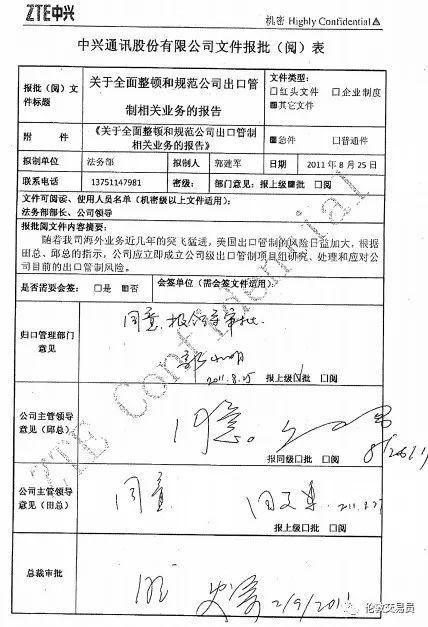 ZTE中兴
机密 Highly Confidential△
中兴通讯股份有限公司文件报批（阅）表
报批（阅）文件标题 关于全面整顿和规范公司出口管制相关业务的报告 文件类型：
□红头文件 □企业制度
■其它文件
附 件 《关于全面整顿和规范公司出口管制相关业务的报告》 ■急件 □普通件
拟制单位 法务部 拟制人 郭建军 日期 2011 年 8 月 25 日
联系电话 13751147981 密级： 部门意见：报上级■批 □阅
文件可阅读、使用人员名单（机密级以上文件适用）：
法务部部长、公司领导
报批阅文件内容摘要：
随着我司海外业务近几年的突飞猛进，美国出口管制的风险日益加大，根据
田总、邱总的指示，公司应立即成立公司级出口管制项目组研究、处理和应对公
司目前的出口管制风险。
是否需要会签： □是 ■否 会签单位（需会签文件适用）：
归口管理部门意见
同意，报领导审批
郭小明
2011.8.25 报上级□批 □阅
公司主管领导意见（邱总）
同意。
报同级□批 □阅
公司主管领导意见（田总）
同意 田文果
报上级□批 □阅
总裁审批
2/9/2011
ZTE Confidential
伦敦交易员